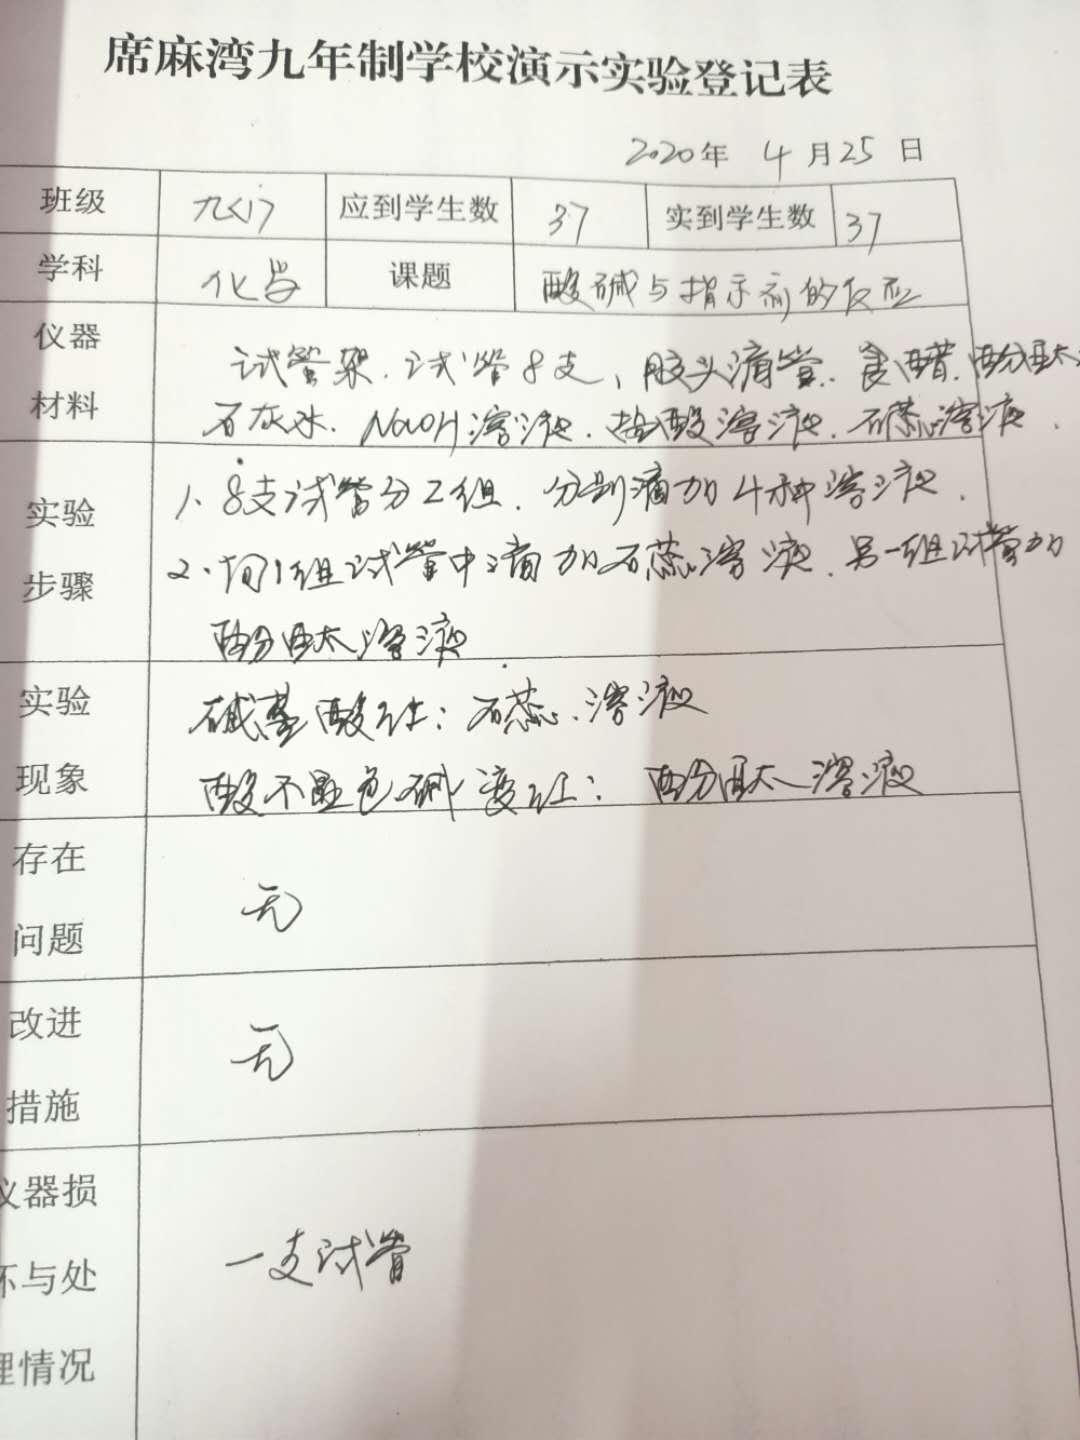 席麻湾九年制学校演示实验登记表
2020年 4月25日
班级 九(1) 应到学生数 37 实到学生数 37
学科 化学 课题 酸碱与指示剂的反应
仪器 试管架、试管8支、胶头滴管、食醋、酚酞
材料 石灰水、NaOH溶液、盐酸溶液、石蕊溶液、
1、8支试管分2组、分别滴加4种溶液、
实验
2、向1组试管中滴加石蕊溶液、另一组试管加
步骤
酚酞溶液
实验 碱蓝酸红：石蕊溶液
现象 酸不显色碱变红：酚酞溶液
存在
无
问题
改进
无
措施
仪器损
一支试管
坏与处
理情况